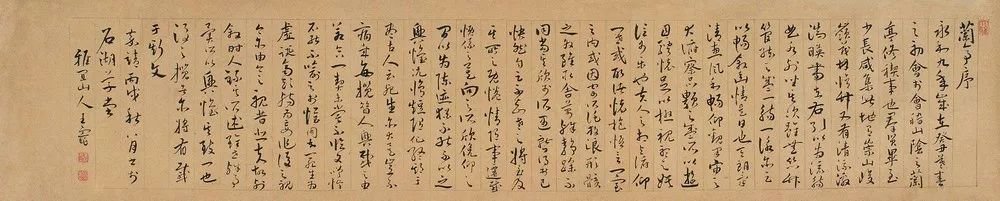 蘭亭序
永和九年歲在癸丑暮春
之初會于會稽山陰之蘭
亭脩禊事也羣賢畢至
少長咸集此地有崇山峻
嶺茂林脩竹又有清流激
湍暎帶左右引以為流觴
曲水列坐其次雖無絲竹
管絃之盛一觴一詠亦足
以暢敘幽情是日也天朗氣
清惠風和暢仰觀宇宙之
大俯察品類之盛所以遊
目騁懷足以極視聽之娛
信可樂也夫人之相與俯仰
一世或取諸懷抱悟言一室
之內或因寄所託放浪形骸
之外雖取舍萬殊靜躁不
同當其欣於所遇暫得於己
快然自足不知老之將至及
其所之既惓情隨事遷感
慨係之矣向之所欣俛仰之
間以為陳迹猶不能不以之
興懷況脩短隨化終期於
盡古人云死生亦大矣豈不
痛哉每攬昔人興感之由
若合一契未嘗不臨文嗟悼
不能喻之於懷固知一死生為
虛誕齊彭殤為妄作後之視
今亦由今之視昔悲夫故列
敘時人錄其所述雖世殊事
異所以興懷其致一也
後之攬者亦將有感
于斯文
嘉靖丙戌秋八月書
石湖草堂
雅宜山人王寵